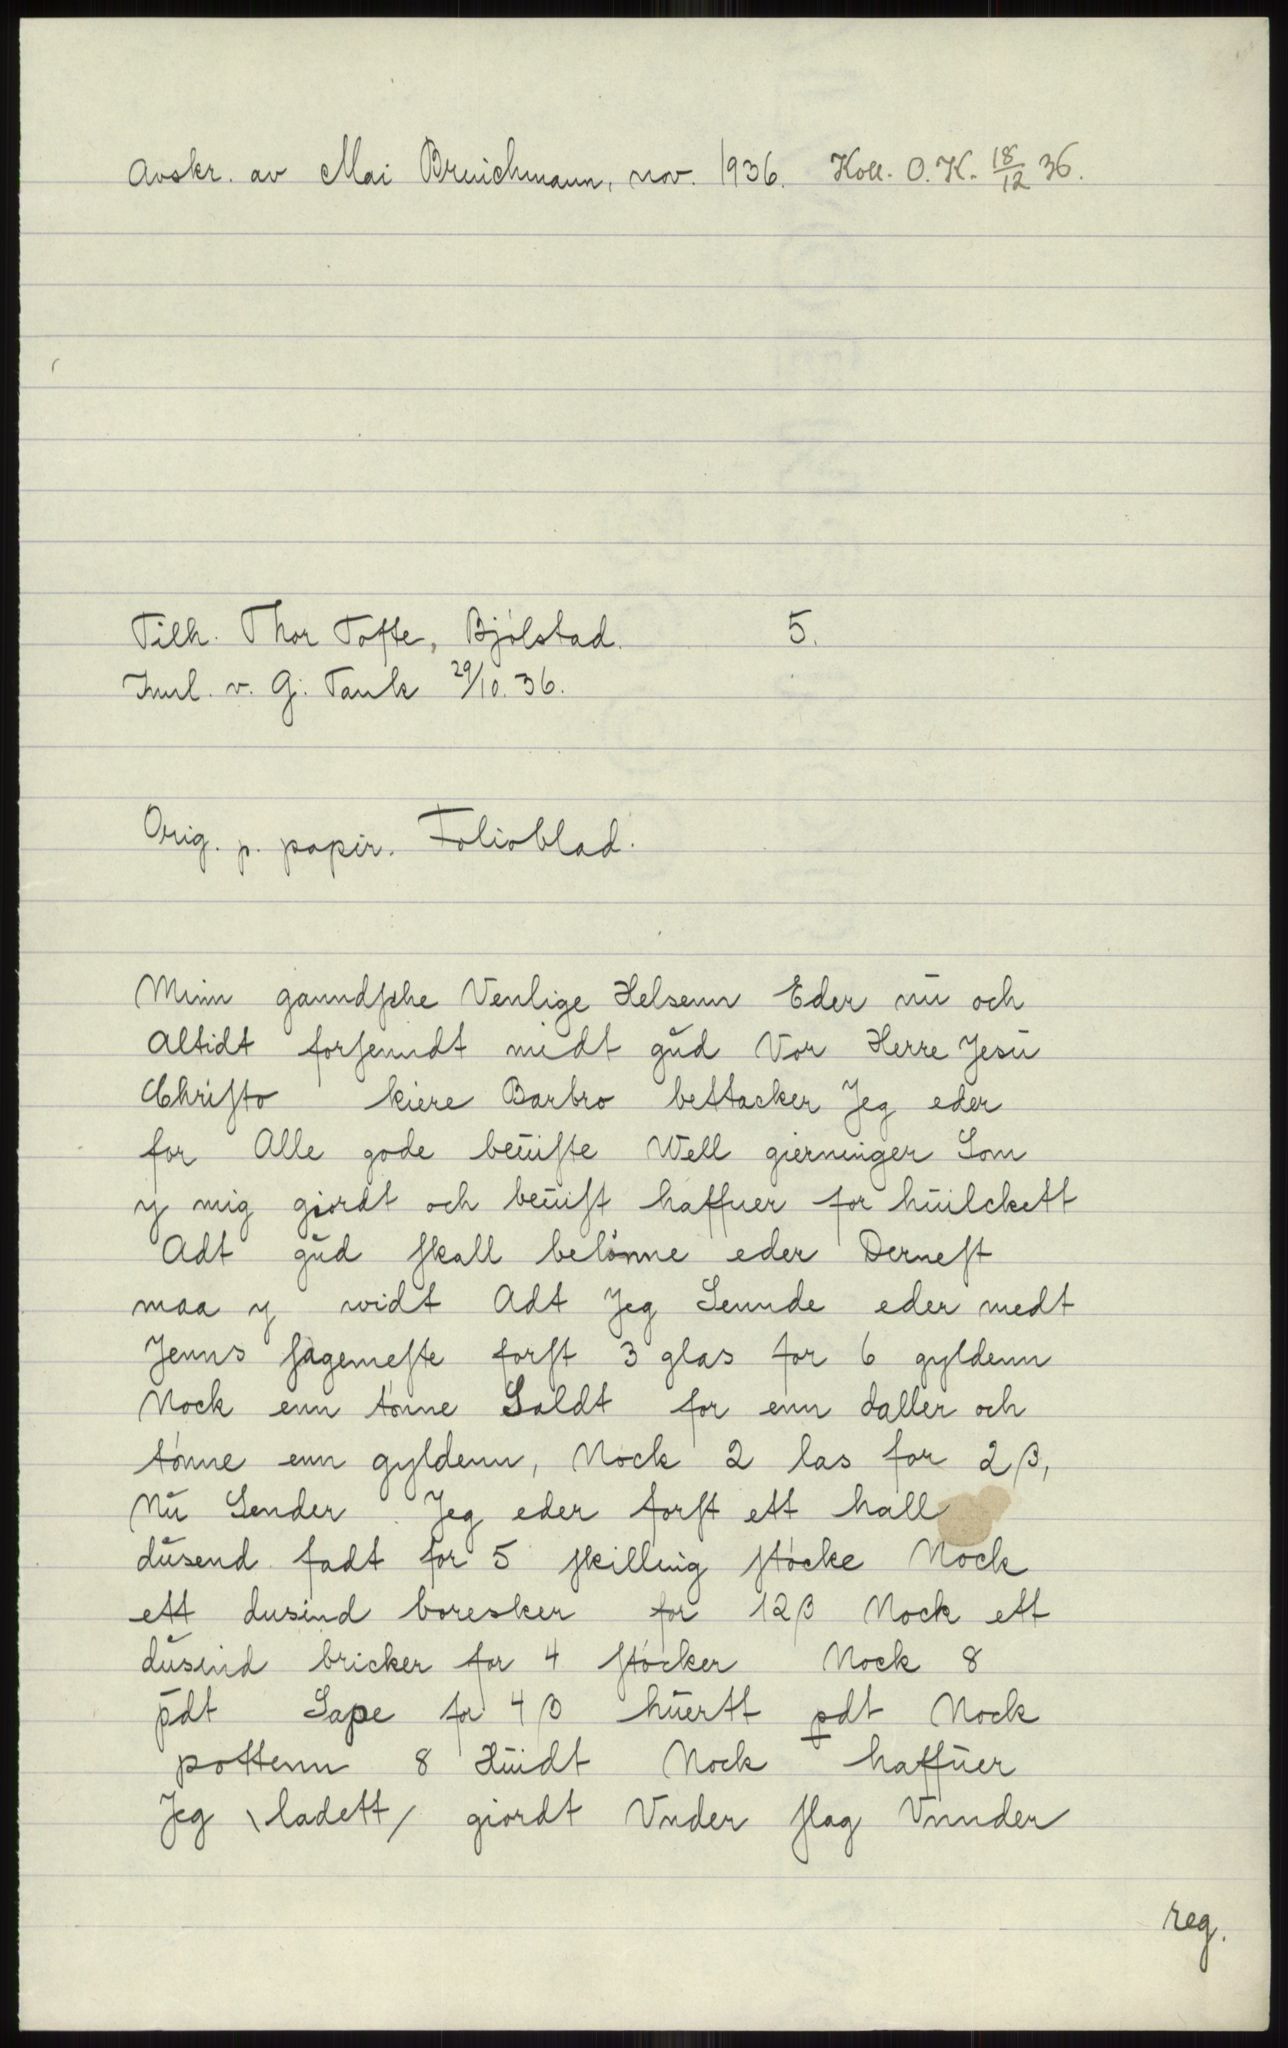 Avskr. av Mai Bruichmann, nov. 1936. Koll. O.K. 18/12 36.
Tilh. Thor Tofte, Bjølstad. 5.
Innl. v. G. Tank 29/10. 36.
Orig. p. papir. Folioblad.
Minn ganndſche Venlige Helsenn Eder nŭ och
Altidt forſenndt medt gŭd Vor Herre Jesŭ
Chriſto kiere Barbro bettacker Jeg eder
for Alle gode beŭiſte Well gierninger Som
y mig giordt och beŭiſt haffuer for hŭilckett
Adt gŭd ſkall belønne eder Derneſt
maa y widt Adt Jeg Sennde eder medt
Jenns ſagemeſte forſt 3 glas for 6 gyldenn
Nock enn tønne Saldt for enn daller och
tønne enn gyldenn, Nock 2 las for 2 β,
Nŭ Sender Jeg eder forſt ett hall
dŭsend fadt for 5 ſkilling ſtøcke Nock
ett dusind boresker for 12 β Nock ett
dŭsind bricker for 4 ſtøcker Nock 8
pdt Sape for 4 β hŭertt pdt Nock
pottenn 8 Hŭidt Nock haffŭer
Jeg \ladett/ giordt Vnder ſlag Vnnder
reg.